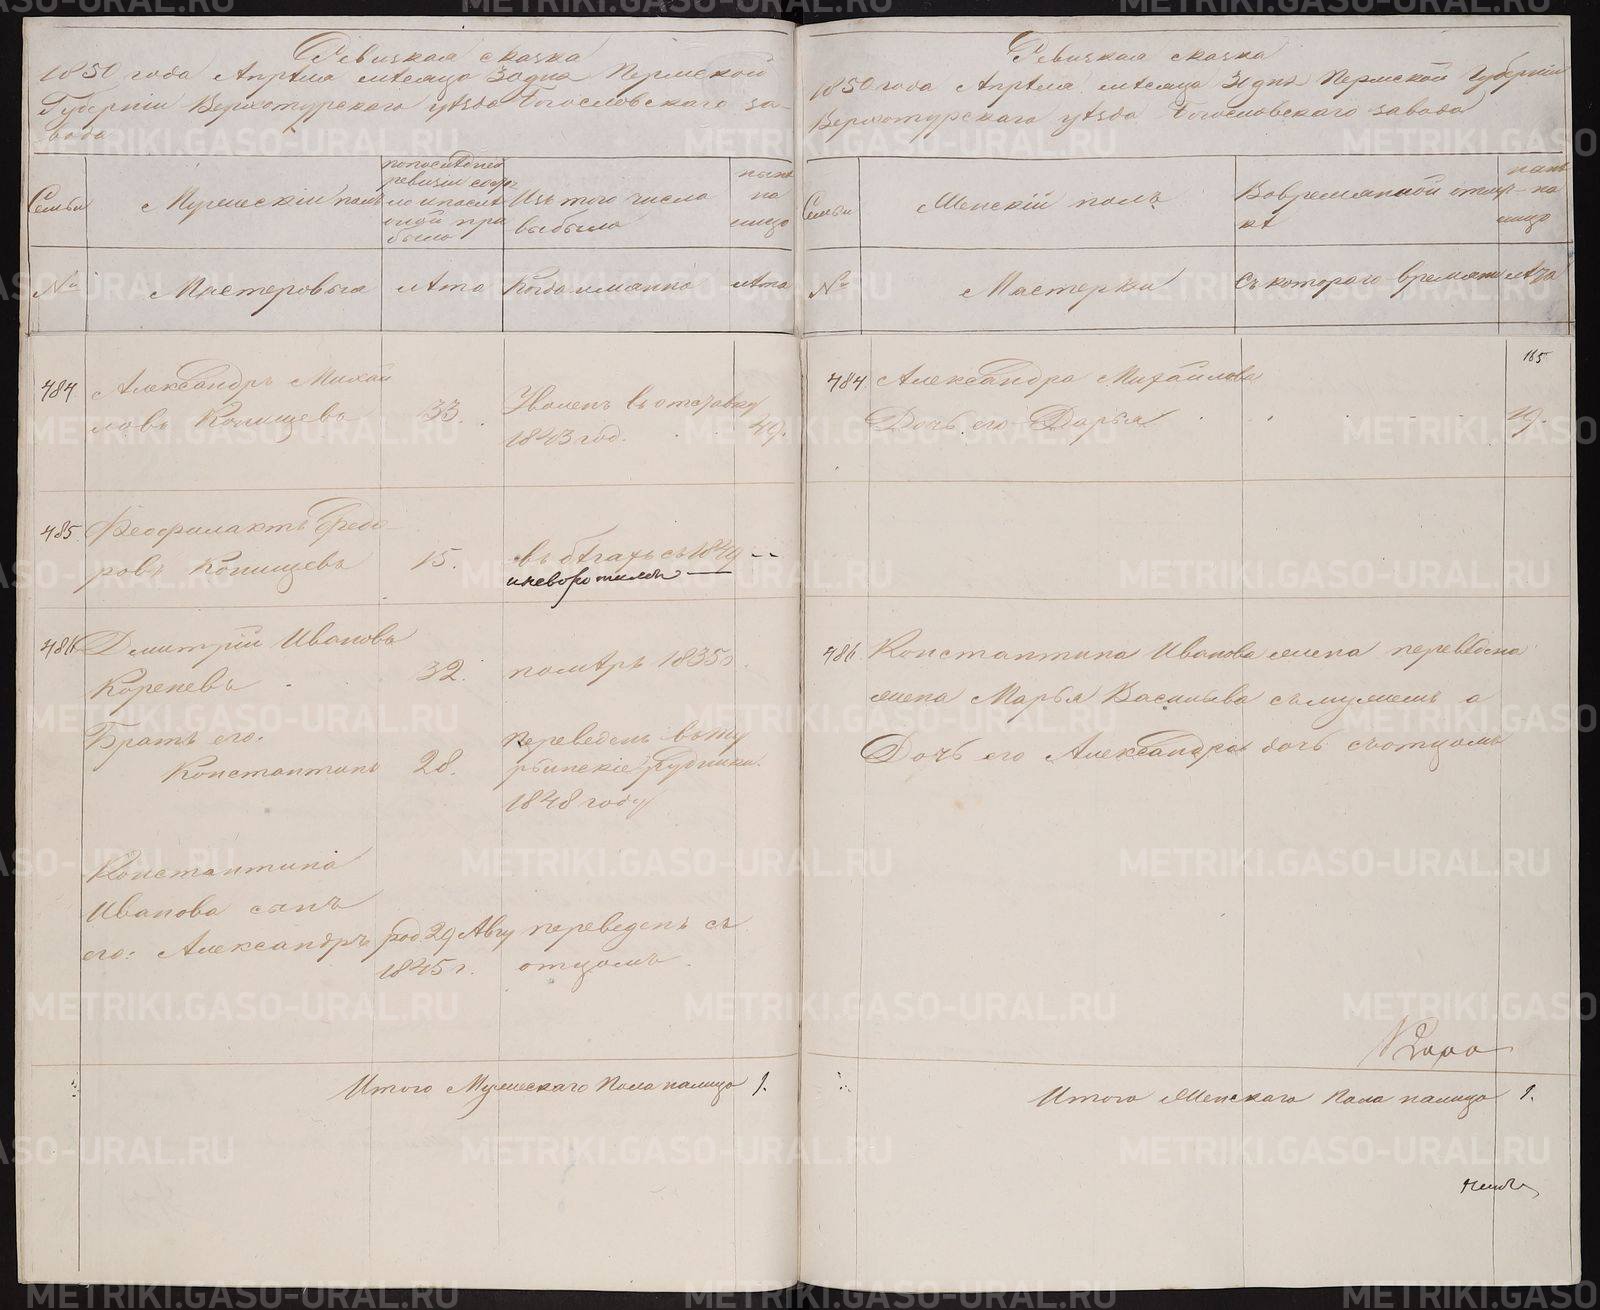 Ревизкая сказка
1850 года Апреля месяца 30 дня Пермской
Губерніи Верхотурскаго уѣзда Богословскаго за-
вода
Семьи
Мужескій полъ
Изъ того числа
выбыло
нынѣ
на
лицо
№
Мастеровые
лѣта
Когда именно
лѣта
484
Александръ Михай
ловъ Копищевъ
33.
Уволенъ въ отставку
1843 год.
49.
485
Феофилактъ Федо-
ровъ Копищевъ
15.
въ бѣгахъ съ 1849
и не воротился
486
Дмитрій Ивановъ
Кореневъ
32.
помѣръ 1835 г.
Братъ его:
Константинъ
28.
Переведенъ въ Ту
рьинскіе Рудники.
1848 году
Константина
Иванова сынъ
его: Александръ
род. 29 Авгу
1845 г.
переведенъ съ
отцомъ.
Итого Мужескаго Пола налицо 1.
Ревизкая сказка
1850 года Апреля месяца 30 дня Пермской Губерніи
Верхотурскаго уѣзда Богословскаго завода
Семьи
Женскій полъ
Во временной отлуч-
кѣ
на
лицо
№
Мастерки
Съ котораго времяни
лѣта
165
484
Александра Михайлова
Дочь его Дарья
19.
486
Константина Иванова жена переведена
жена Марья Васильева съ мужемъ а
Дочь его Александра дочь съ отцомъ
Итого Женскаго Пола налицо 1.
METRIKI.GASO-URAL.RU